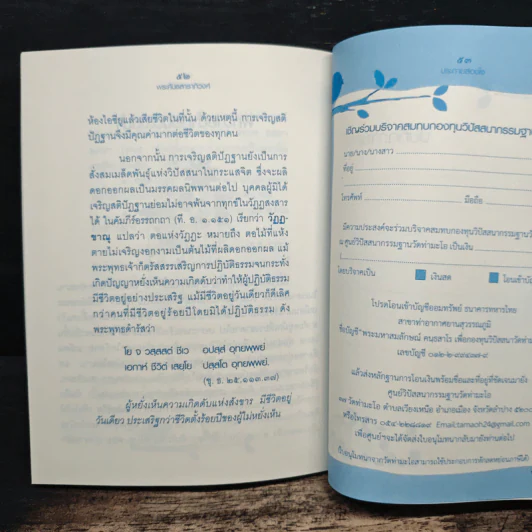 ๕๒
พระคันธสาราภิวงศ์
ห้องไอซียูแล้วเสียชีวิตในที่นั้น ด้วยเหตุนี้ การเจริญสติ
ปัฏฐานจึงมีคุณค่ามากต่อชีวิตของทุกคน
นอกจากนั้น การเจริญสติปัฏฐานยังเป็นการ
สั่งสมเมล็ดพันธุ์แห่งวิปัสสนาในกระแสจิต ซึ่งจะผลิ
ดอกออกผลเป็นมรรคผลนิพพานต่อไป บุคคลผู้มิได้
เจริญสติปัฏฐานย่อมไม่อาจพ้นจากทุกข์ในวัฏฏสงสาร
ได้ ในคัมภีร์อรรถกถา (ที. อ. ๑.๑๕๑) เรียกว่า วัฏฏ-
ขาณุ แปลว่า ตอแห่งวัฏฏะ หมายถึง ตอไม้ที่แห้ง
ตายไม่เจริญงอกงามเป็นต้นไม้ที่ผลิดอกออกผล แม้
พระพุทธเจ้าก็ตรัสสรรเสริญการปฏิบัติธรรมจนกระทั่ง
เกิดปัญญาหยั่งเห็นความเกิดดับว่าทำให้ผู้ปฏิบัติธรรม
มีชีวิตอยู่อย่างประเสริฐ แม้มีชีวิตอยู่วันเดียวก็ดีเลิศ
กว่าคนที่มีชีวิตอยู่ร้อยปีโดยมิได้ปฏิบัติธรรม ดัง
พระพุทธดำรัสว่า
โย จ วสฺสสตํ ชีเว อปสฺสํ อุทยพฺพยํ
เอกาหํ ชีวิตํ เสยฺโย ปสฺสโต อุทยพฺพยํ.
(ขุ. ธ. ๒๕.๑๑๓.๓๗)
ผู้หยั่งเห็นความเกิดดับแห่งสังขาร มีชีวิตอยู่
วันเดียว ประเสริฐกว่าชีวิตตั้งร้อยปีของผู้ไม่หยั่งเห็น
๕๓
เชิญร่วมบริจาคสมทบกองทุนวิปัสสนากรรมฐาน
นาย/นาง/นางสาว
ที่อยู่
โทรศัพท์ มือถือ
มีความประสงค์จะร่วมบริจาคสมทบกองทุนวิปัสสนากรรมฐาน
ณ ศูนย์วิปัสสนากรรมฐานวัดท่ามะโอ เป็นเงิน
โดยบริจาคเป็น เงินสด โอนเข้าบัญ
โปรดโอนเข้าบัญชีออมทรัพย์ ธนาคารทหารไทย
สาขาท่าอากาศยานสุวรรณภูมิ
ชื่อบัญชี "พระมหาสมลักษณ์ คนธสาโร เพื่อกองทุนวิปัสสนาวัดท่ามะ
เลขบัญชี
แล้วส่งหลักฐานการโอนเงินพร้อมชื่อและที่อยู่ที่ชัดเจนมายัง
ศูนย์วิปัสสนากรรมฐานวัดท่ามะโอ
๑๗ วัดท่ามะโอ ตำบลเวียงเหนือ อำเภอเมือง จังหวัดลำปาง ๕๒๐๐
หรือโทรสาร Email:tamaoh24@gmail.com
เพื่อศูนย์ฯจะได้จัดส่งใบอนุโมทนากลับมายังท่านต่อไป
ใบอนุโมทนาจากวัดท่ามะโอสามารถใช้ประกอบการหักลดหย่อนภาษีได้)